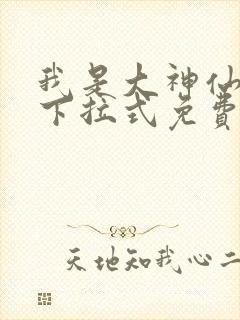 我是大神仙
下拉式免費
天地知我心二